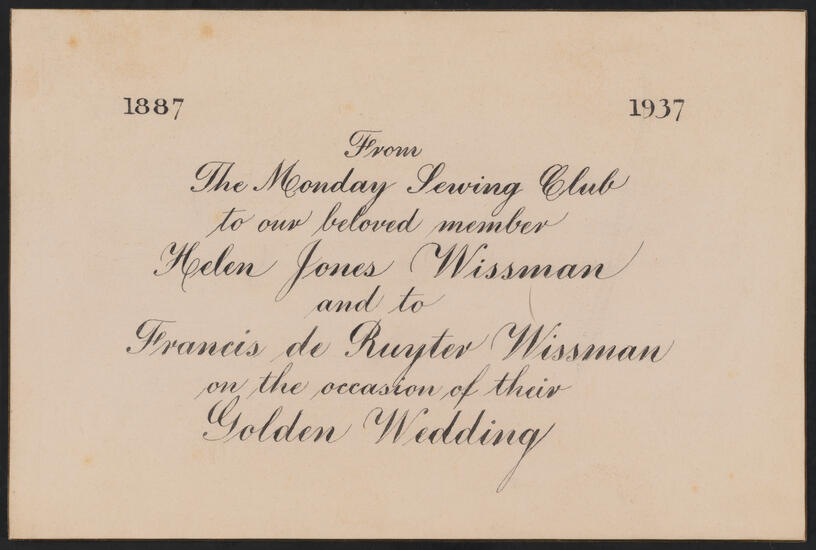 1887 1937
From
The Monday Sewing Club
to our beloved member
Helen Jones Wissman
and to
Francis de Ruyter Wissman
on the occasion of their
Golden Wedding